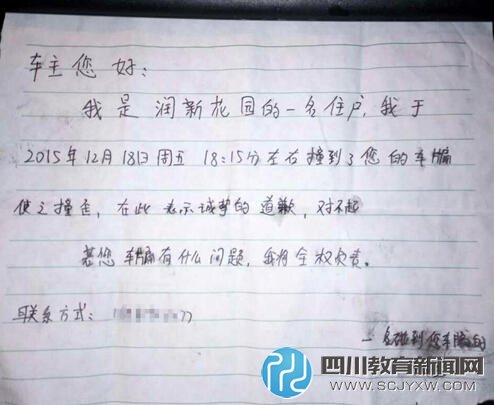 车主您好：
我是润新花园的一名住户，我于
2015年12月18日周五 18:15分左右撞到了您的车牌
使之撞歪，在此表示诚挚的道歉，对不起
若您车牌有什么问题，我将全权负责。
联系方式：
一名碰到您车牌的
四川教育新闻网
WWW.SCJYXW.COM